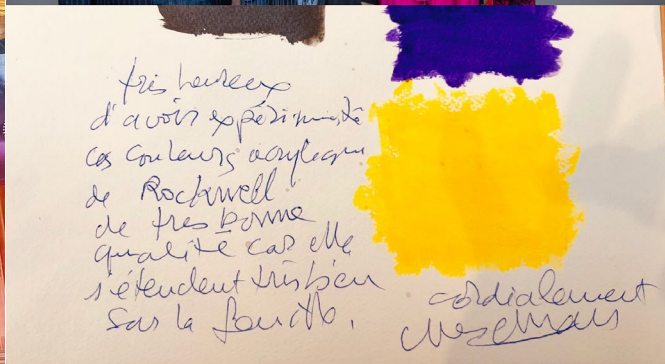 très heureux
d'avoir expérimenté
ces couleurs acrylique
de Rockwell
de très bonne
qualité car elle
s'étendent très bien
sur la feuille.
cordialement